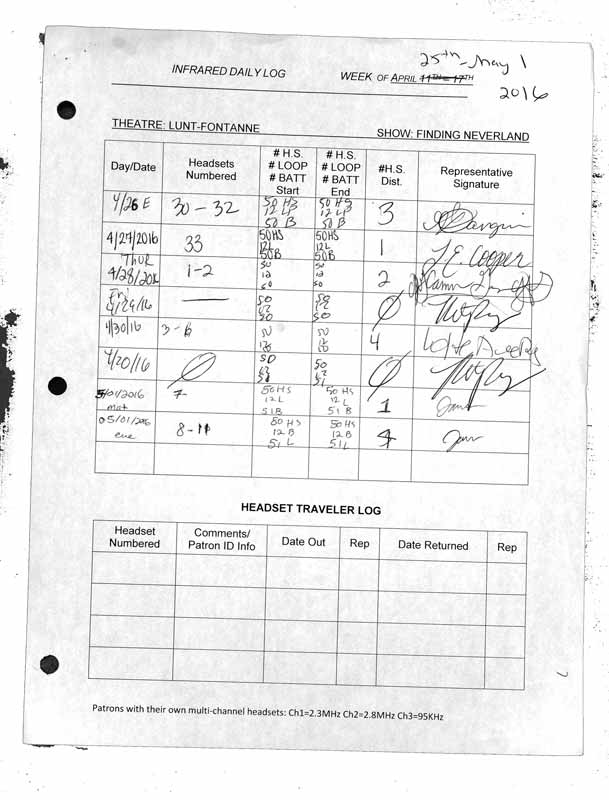 25th - May 1
INFRARED DAILY LOG WEEK OF APRIL 11TH - 17TH
2016
THEATRE: LUNT-FONTANNE SHOW: FINDING NEVERLAND
Day/Date
Headsets
Numbered
# H.S.
# LOOP
# BATT
Start
# H.S.
# LOOP
# BATT
End
#H.S.
Dist.
Representative
Signature
4/26 E
30 - 32
50 HS
12 LP
50 B
50 HS
12 LP
50 B
3
4/27/2016
33
50HS
12L
50B
50HS
12L
50B
1
J.E. Cooper
Thur
4/28/201
1-2
50
12
50
50
12
50
2
Fri
4/29/16
—
50
12
50
50
12
50
Ø
4/30/16
3-6
50
12
50
50
4
4/20/16
Ø
50
12
51
50
12
51
Ø
5/01/2016
mat
7
50 HS
12 L
51 B
50 HS
12 L
51 B
1
05/01/2016
eve
8-11
50 HS
12 B
51 L
50 HS
12 B
51 L
4
HEADSET TRAVELER LOG
Headset
Numbered
Comments/
Patron ID Info
Date Out
Rep
Date Returned
Rep
Patrons with their own multi-channel headsets: Ch1=2.3MHz Ch2=2.8MHz Ch3=95KHz